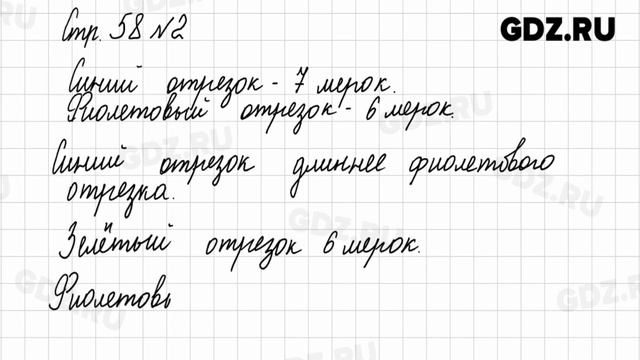 Стр. 58 №2
GDZ.RU
Синий отрезок - 7 мерок.
Фиолетовый отрезок - 6 мерок.
Синий отрезок длиннее фиолетового
отрезка.
Зелётый отрезок 6 мерок.
Фиолетовы